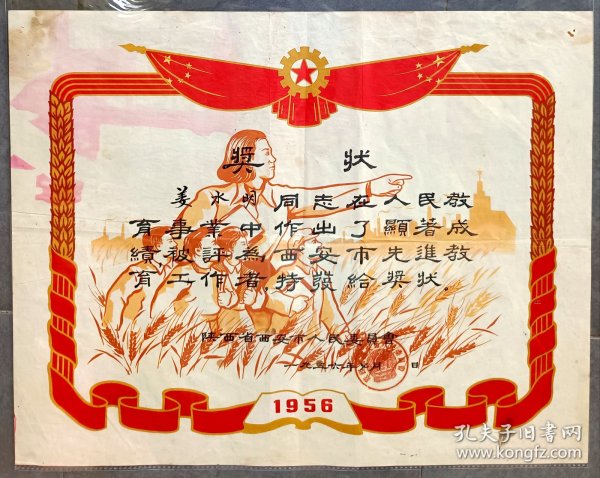 獎 狀
姜永明同志在人民教
育事業中作出了顯著成
績被評為西安市先進教
育工作者特發給獎狀.
陕西省西安市人民委員會
一九五六年 月 日
1956
孔夫子旧书网
kongfz.com